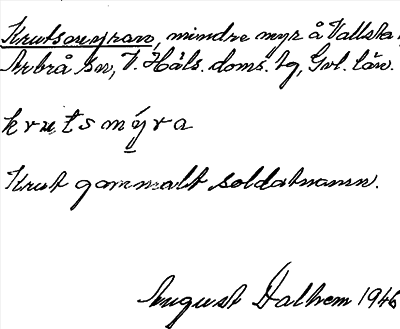 Krutsmyran, mindre myr å Vallsta,
Arbrå sn, V. Häls. doms. tg, Gvl. län.
krutsmýra
Krut gammalt soldatnamn.
August Dalhem 1946